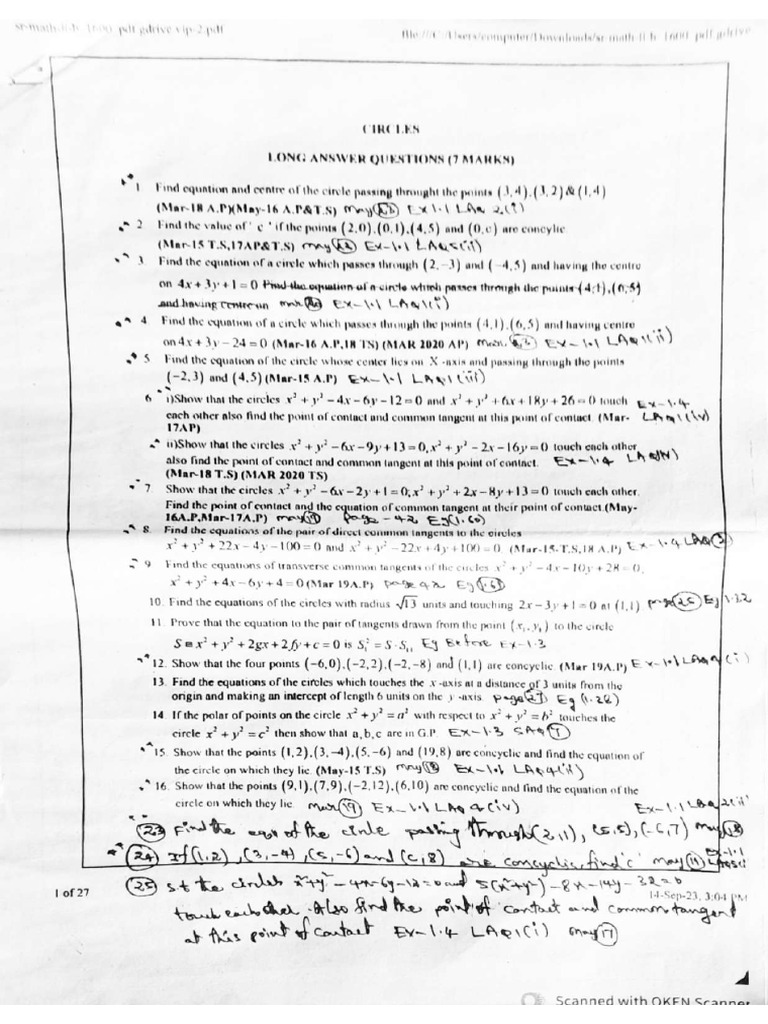 sr-math-ii-b_1600_pdf gdrive vip-2.pdf
file:///C:/Users/computer/Downloads/sr-math-ii-b_1600_pdf gdrive
CIRCLES
LONG ANSWER QUESTIONS (7 MARKS)
1 Find equation and centre of the circle passing throught the points (3,4),(3,2)&(1,4)
(Mar-18 A.P)(May-16 A.P&T.S) may Ex 1.1 LAQ 2(i)
2 Find the value of 'c' if the points (2,0),(0,1),(4,5) and (0,c) are concylic
(Mar-15 T.S,17AP&T.S) may Ex-1.1 LAQ5(ii)
3. Find the equation of a circle which passes through (2,-3) and (-4,5) and having the centre
on 4x+3y+1=0 Find the equation of a circle which passes through the points (4,1),(6,5)
and having centre on mar Ex-1.1 LAQ1(i)
4. Find the equation of a circle which passes through the points (4,1),(6,5) and having centre
on 4x+3y-24=0 (Mar-16 A.P,18 TS) (MAR 2020 AP) mar Ex-1.1 LAQ1(ii)
5 Find the equation of the circle whose center lies on X-axis and passing through the points
(-2,3) and (4,5) (Mar-15 A.P) Ex-1.1 LAQ1(iii)
6 i)Show that the circles x²+y²-4x-6y-12=0 and x²+y²+6x+18y+26=0 touch Ex-1.4
each other also find the point of contact and common tangent at this point of contact. (Mar- LAQ1(iv)
17AP)
ii)Show that the circles x²+y²-6x-9y+13=0,x²+y²-2x-16y=0 touch each other
also find the point of contact and common tangent at this point of contact. Ex-1.4
(Mar-18 T.S) (MAR 2020 TS)
7. Show that the circles x²+y²-6x-2y+1=0;x²+y²+2x-8y+13=0 touch each other.
Find the point of contact and the equation of common tangent at their point of contact.(May-
16A.P,Mar-17A.P) may 19 page-42 Eg(1.60)
8. Find the equations of the pair of direct common tangents to the circles
x²+y²+22x-4y-100=0 and x²+y²-22x+4y+100=0. (Mar-15-T.S,18 A.P) Ex-1.4 LAQ 3
9 Find the equations of transverse common tangents of the circles x²+y²-4x-10y+28=0,
x²+y²+4x-6y+4=0 (Mar 19A.P) page 42 Eg 1.61
10. Find the equations of the circles with radius √13 units and touching 2x-3y+1=0 at (1,1) page 25 Eg 1.32
11. Prove that the equation to the pair of tangents drawn from the point (x₁,y₁) to the circle
S≡x²+y²+2gx+2fy+c=0 is S₁²=S·S₁₁ Eg Before Ex-1.3
12. Show that the four points (-6,0),(-2,2),(-2,-8) and (1,1) are concyclic. (Mar 19A.P) Ex-1.1 LAQ4(i)
13. Find the equations of the circles which touches the x-axis at a distance of 3 units from the
origin and making an intercept of length 6 units on the y-axis. page 21 Eg (1.28)
14 If the polar of points on the circle x²+y²=a² with respect to x²+y²=b² touches the
circle x²+y²=c² then show that a,b,c are in G.P. Ex-1.3 SAQ 7
15. Show that the points (1,2),(3,-4),(5,-6) and (19,8) are concyclic and find the equation of
the circle on which they lie. (May-15 T.S) may 18 Ex-1.1 LAQ4(ii)
16. Show that the points (9,1),(7,9),(-2,12),(6,10) are concyclic and find the equation of the
circle on which they lie mar 19 Ex-1.1 LAQ 4(iv) Ex-1.1 LAQ 2(ii)
23 Find the eqn of the circle passing through (2,1), (5,5), (-6,7) may 18
24 If (1,2), (3,-4), (5,-6) and (c,8) are concyclic, find 'c' may 19 Ex-1.1 LAQ5(i)
25 S.t the circles x²+y²-4x-6y-12=0 and 5(x²+y²)-8x-14y-32=0
1 of 27
14-Sep-23, 3:04 PM
touch each other. Also find the point of contact and common tangent
at this point of contact Ex-1.4 LAQ1(i) may 17
Scanned with OKEN Scanner